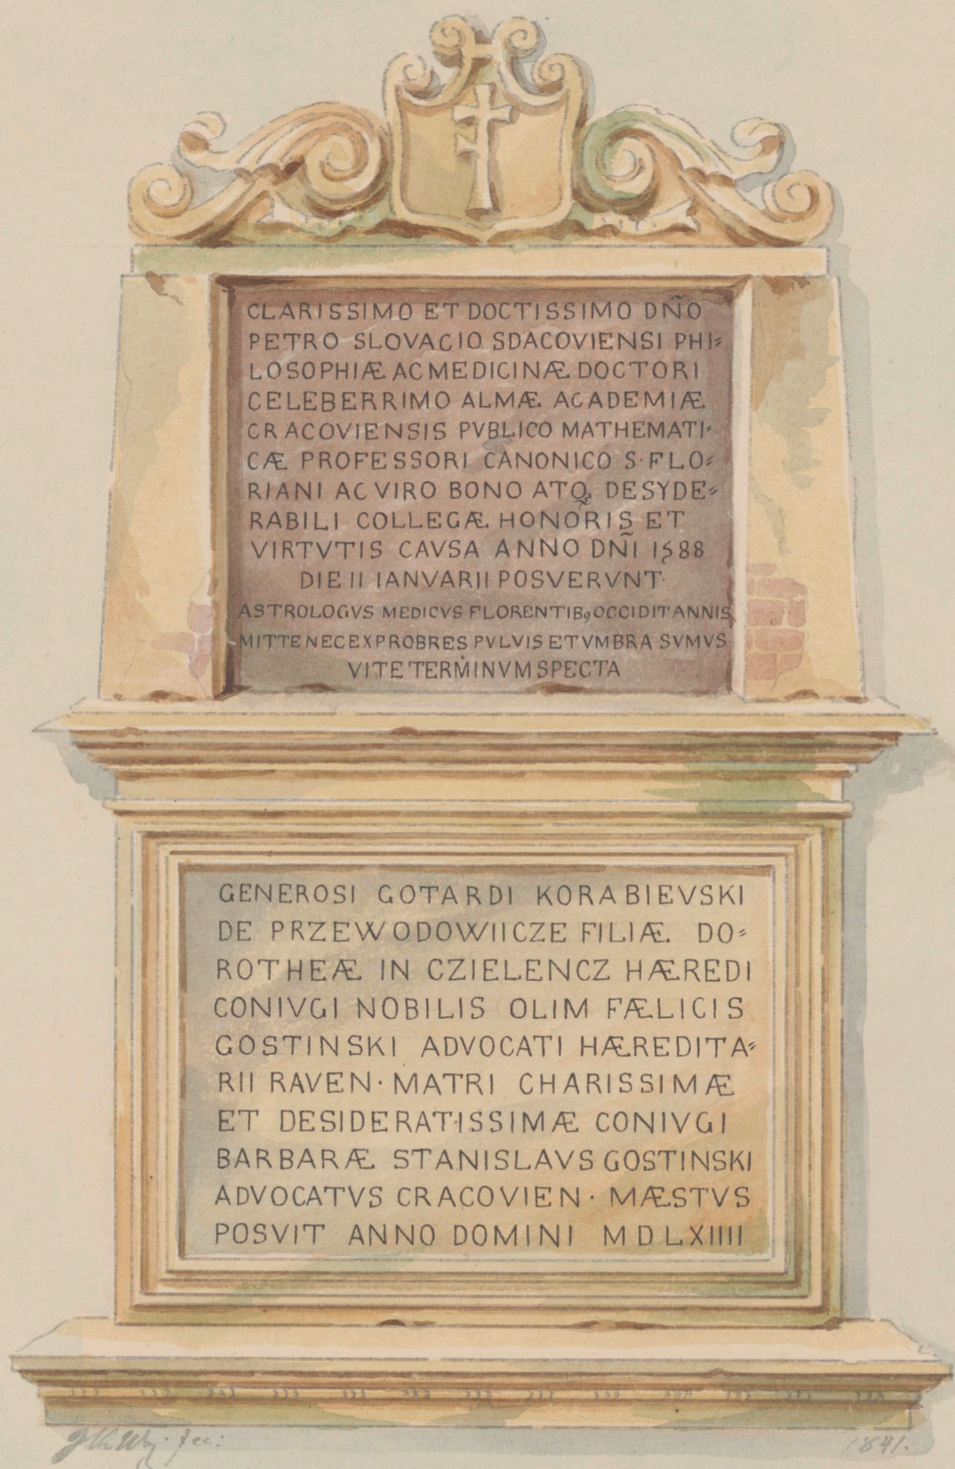 CLARISSIMO ET DOCTISSIMO DÑO
PETRO SLOVACIO SDACOVIENSI PHI=
LOSOPHIÆ AC MEDICINÆ DOCTORI
CELEBERRIMO ALMÆ ACADEMIÆ
CRACOVIENSIS PVBLICO MATHEMATI·
CÆ PROFESSORI CANONICO S·FLO=
RIANI AC VIRO BONO ATQ DESYDE=
RABILI COLLEGÆ HONORIS ET
VIRTVTIS CAVSA ANNO DÑI 1588
DIE II IANVARII POSVERVNT·
ASTROLOGVS MEDICVS FLORENTIB9 OCCIDIT ANNIS
MITTE NEC EXPROBRES PVLVIS ET VMBRA SVMVS
VITE TERMINVM SPECTA
GENEROSI GOTARDI KORABIEVSKI
DE PRZEWODOWIICZE FILIÆ DO=
ROTHEÆ IN CZIELENCZ HÆREDI
CONIVGI NOBILIS OLIM FÆLICIS
GOSTINSKI ADVOCATI HÆREDITA=
RII RAVEN· MATRI CHARISSIMÆ
ET DESIDERATISSIMÆ CONIVGI
BARBARÆ STANISLAVS GOSTINSKI
ADVOCATVS CRACOVIEN· MÆSTVS
POSVIT ANNO DOMINI MDLXIIII
fec: 1841.